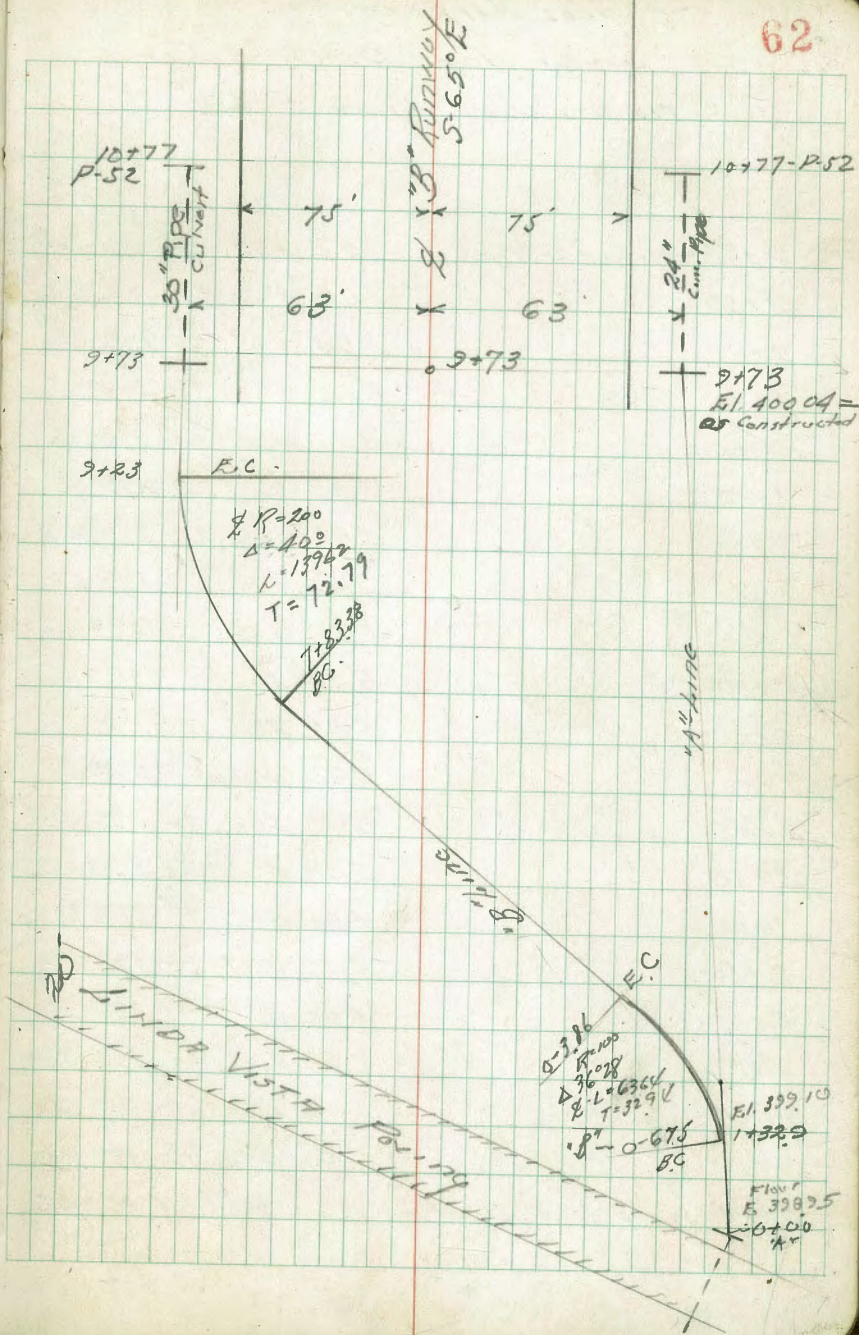 62
"B" Runway
S-65°E
10+77
P-52
30" Pipe
Culvert
75'
75'
10+77-P-52
24"
Pipe
63'
63
9+73
9+73
9+73
El 400.04 =
as Constructed
9+23
E.C.
R=200
Δ=40°
L=139.62
T=72.79
7+83.38
B.C.
"A" Line
"B" Line
E.C
R=100
Δ 36°28
L=63.64
T=32.94
"B" - 0-67.5
B.C
El. 399.10
1+32.9
Flow
E 398.95
0+00
"A"
20
LINDA VISTA Paving